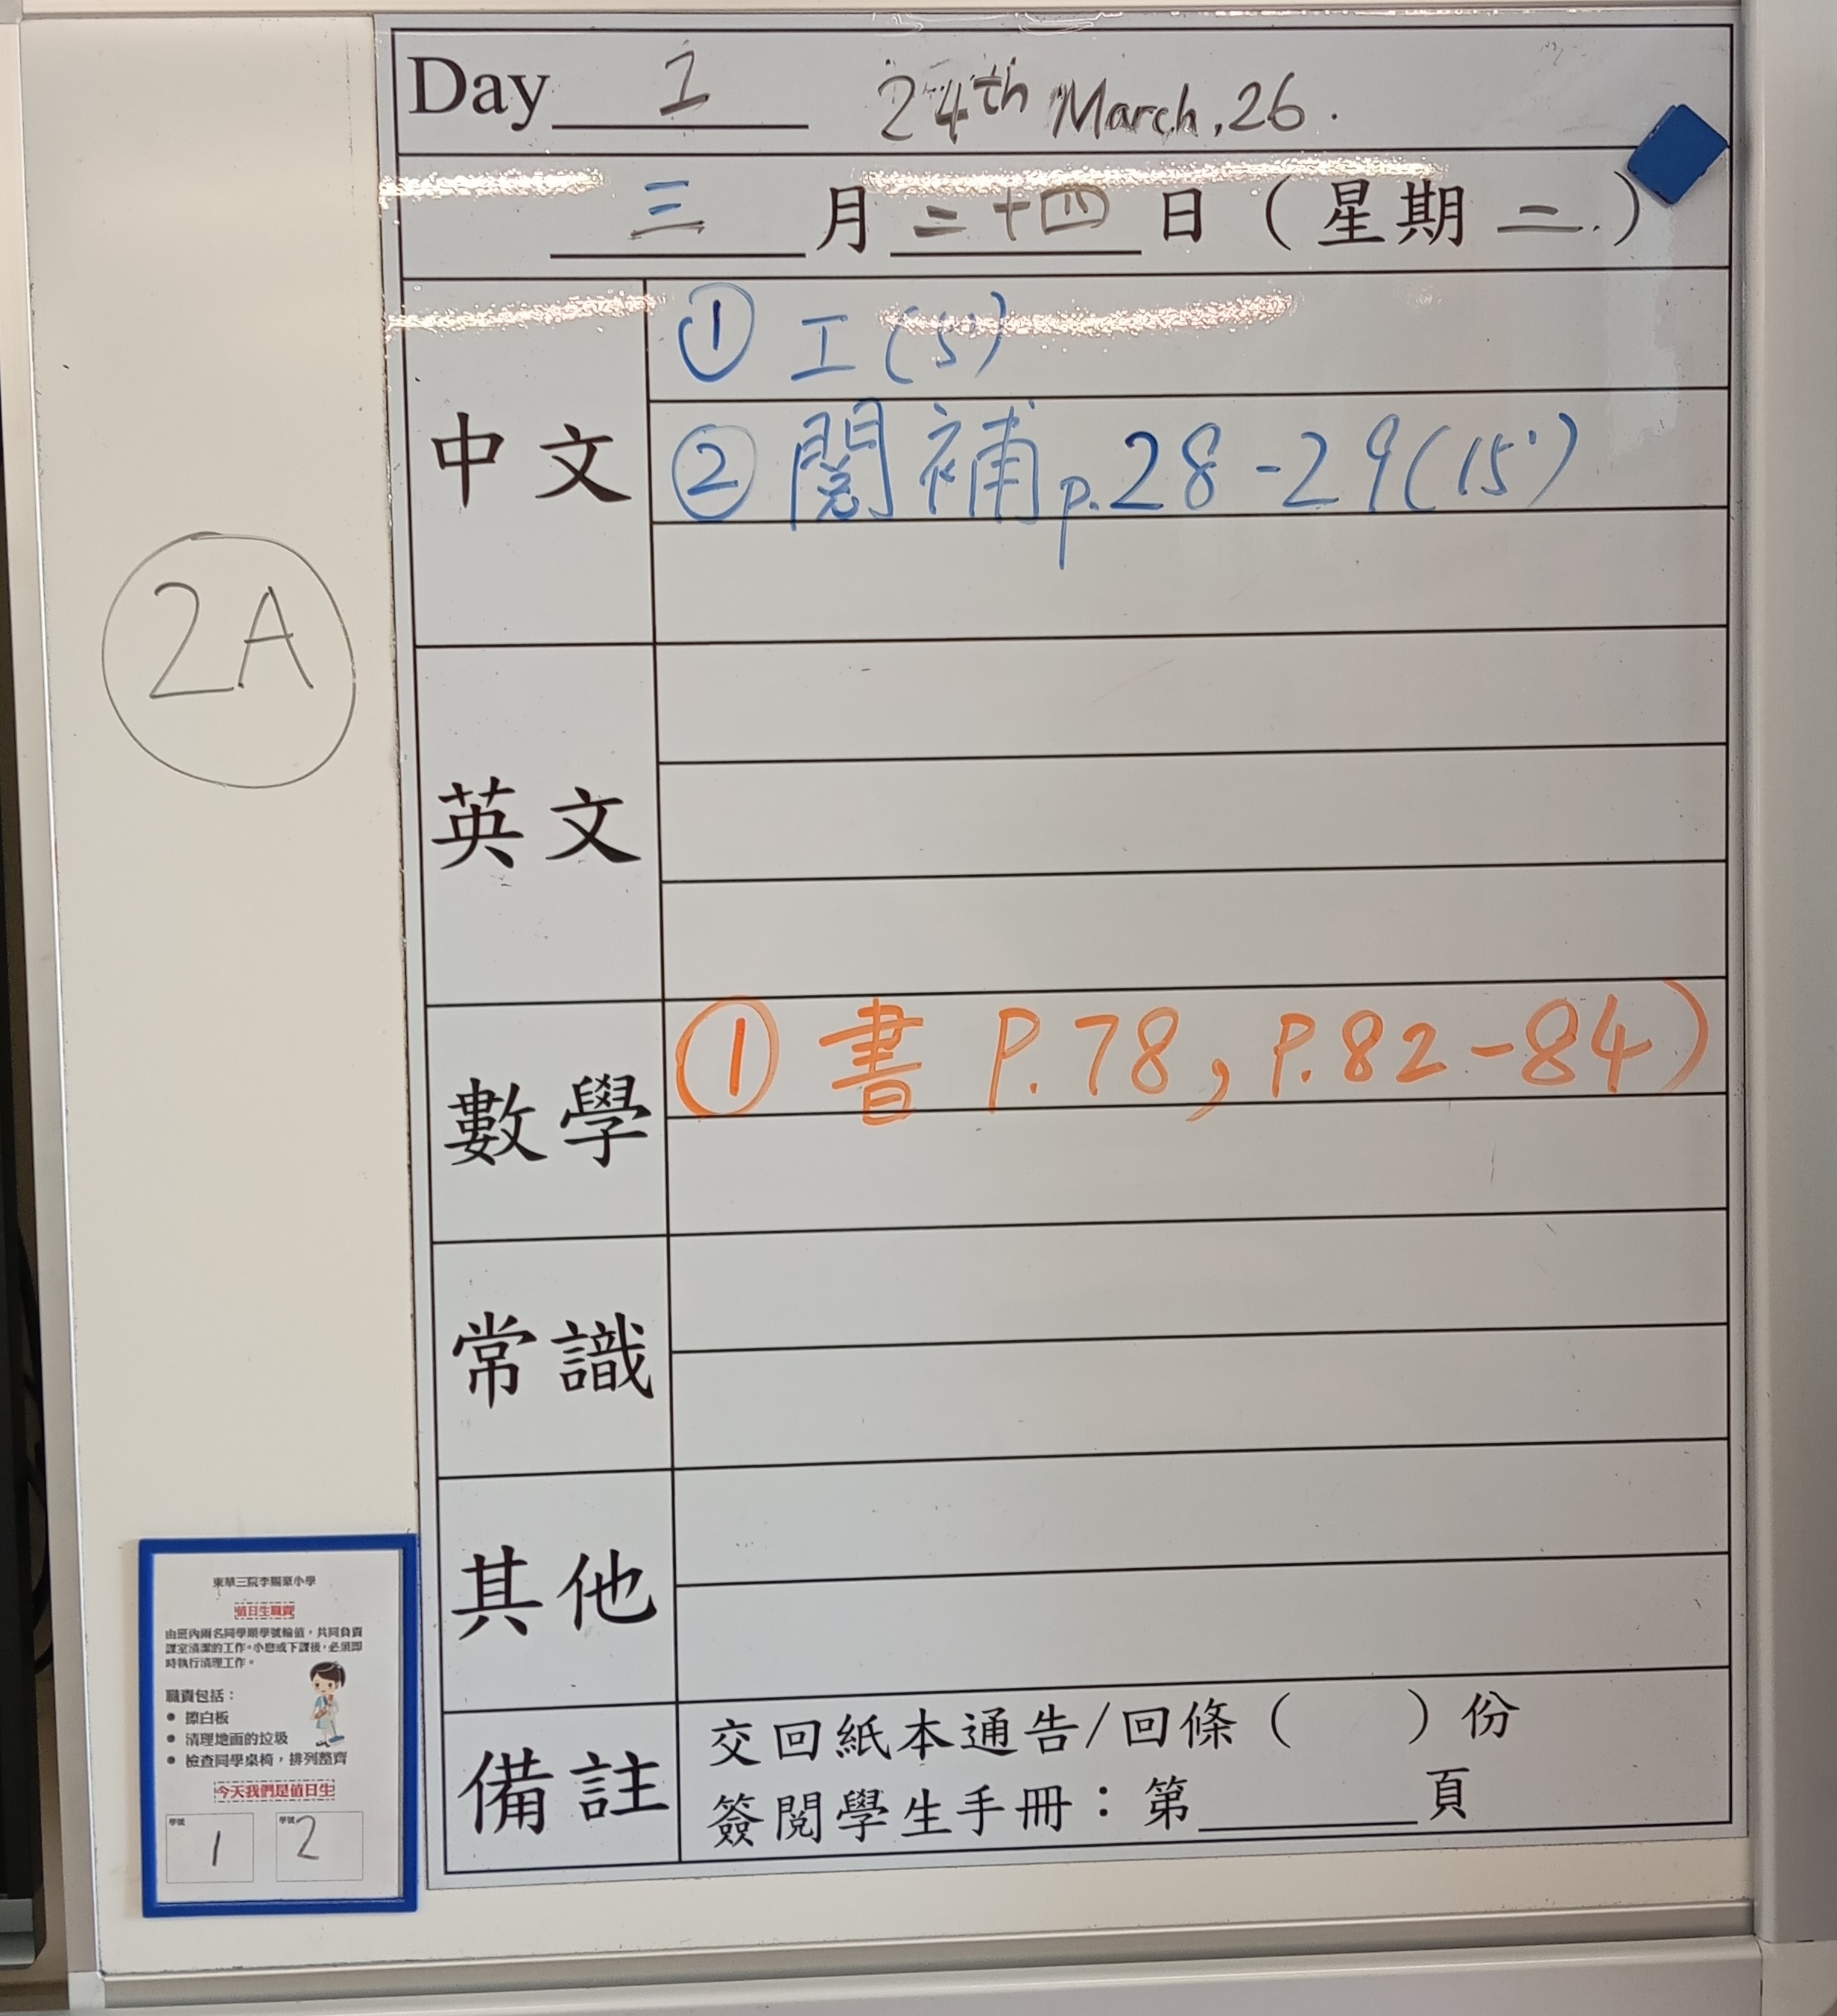 Day 1 24th March, 26.
三 月 二十四 日 (星期 二.)
中文
① 工(5')
② 閱補 p.28-29(15')
2A
英文
數學
① 書 P.78, P.82-84)
常識
其他
備註
交回紙本通告/回條 ( ) 份
簽閱學生手冊：第 頁
東華三院李賜豪小學
值日生職責
由班內兩名同學順學號輪值，共同負責
課室清潔的工作。小息或下課後，必須即
時執行清理工作。
職責包括：
• 擦白板
• 清理地面的垃圾
• 檢查同學桌椅，排列整齊
今天我們是值日生
學號 1 學號 2